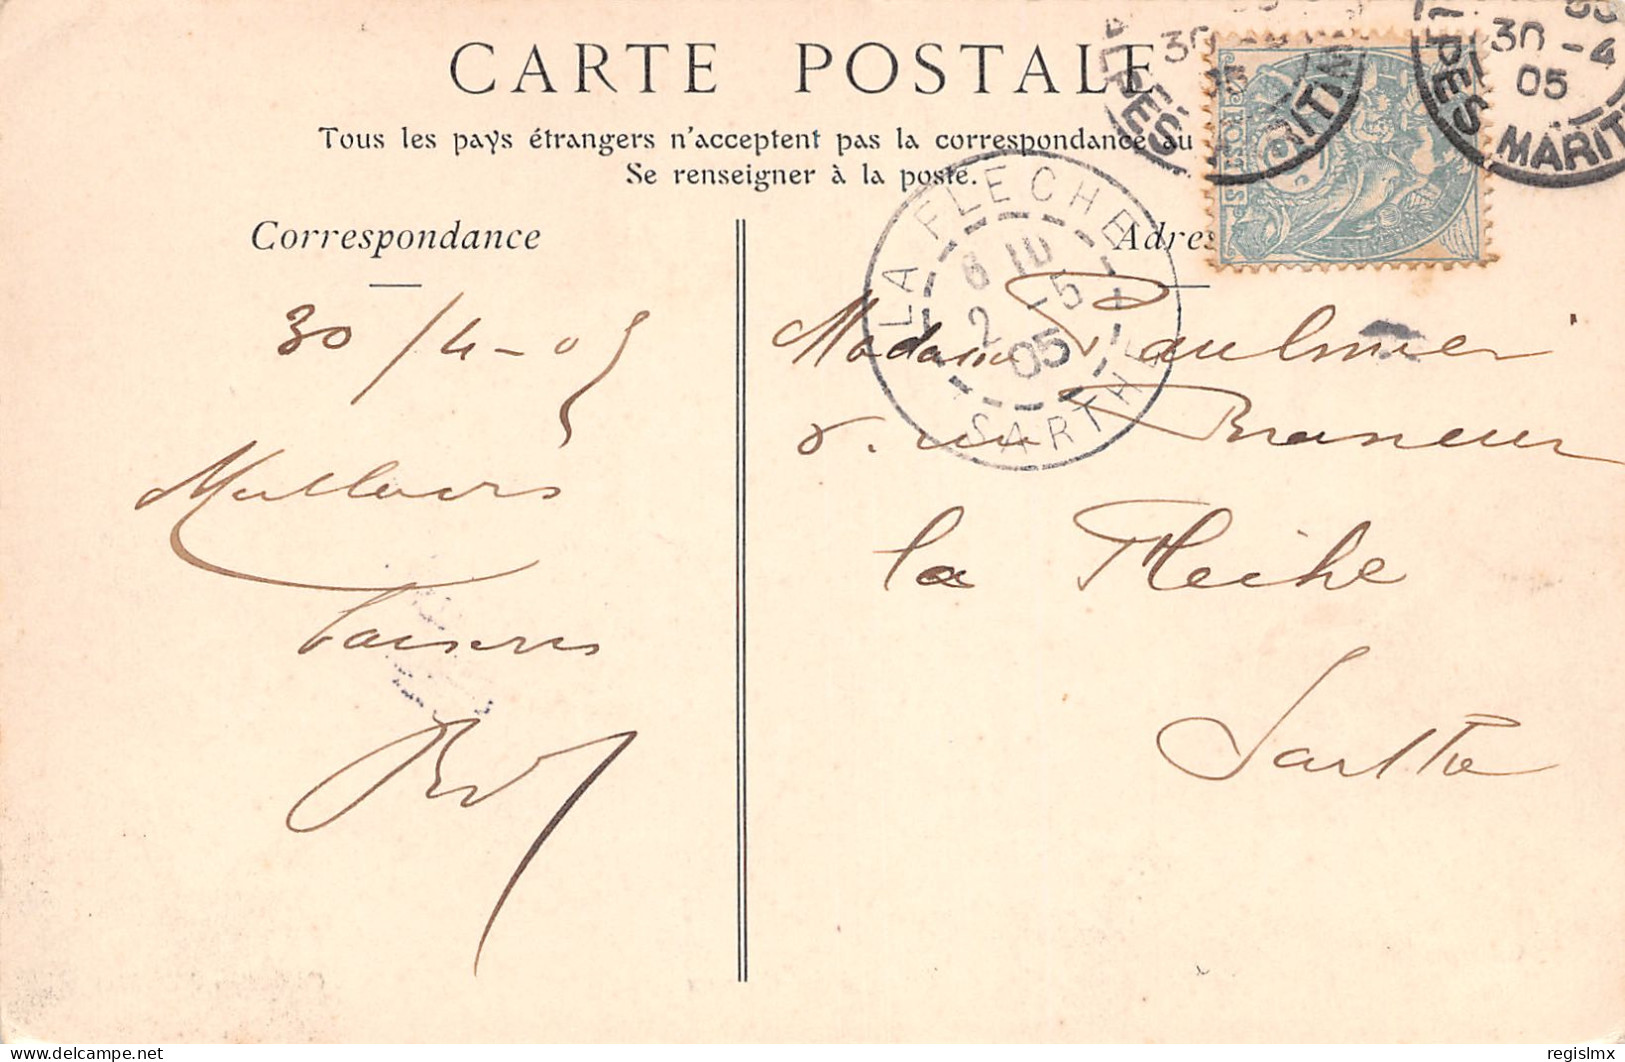 CARTE POSTALE
Tous les pays étrangers n'acceptent pas la correspondance au
Se renseigner à la poste.
Correspondance
Adres
30/4-05
Meilleurs
baisers
Madame Paulmier
rue
la Fleche
Sarthe
LA FLECHE
2 -5
05
SARTHE
30 -4
05
ALPES MARITIM
30 -4
05
PES MARIT
POSTES
delcampe.net
regislmx